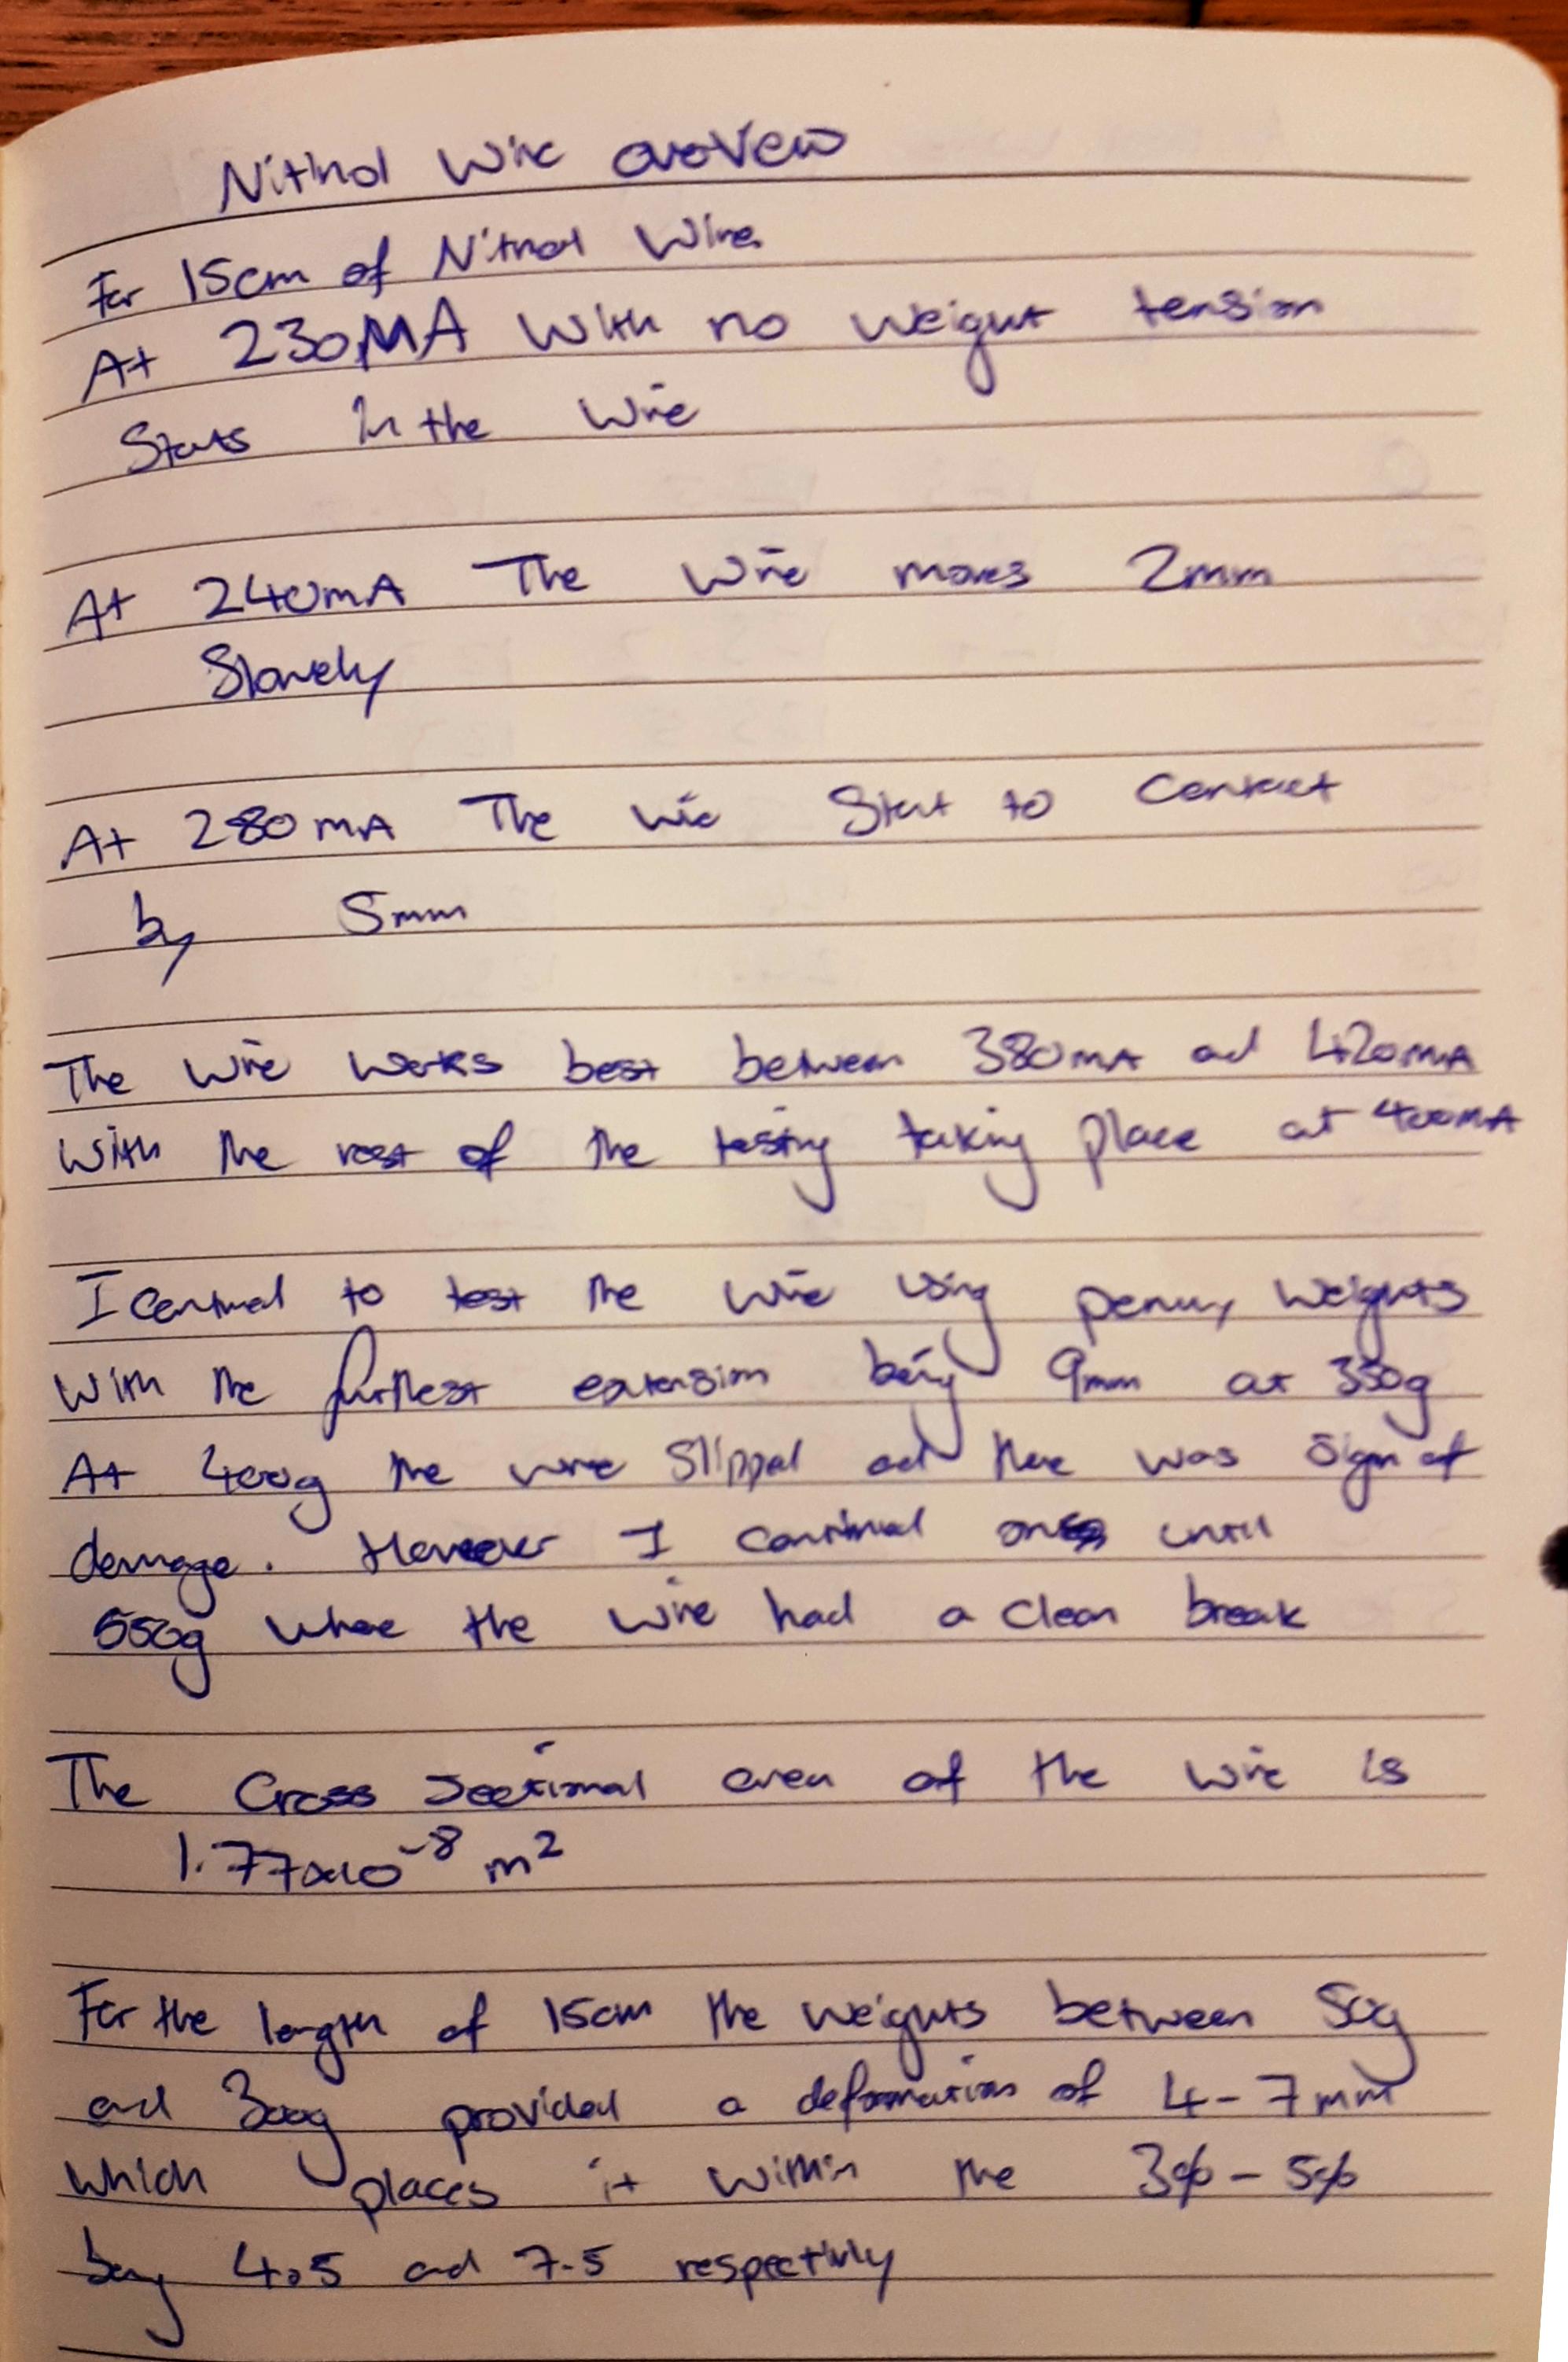 Nitinol Wire overview
For 15cm of Nitinol Wire
At 230MA With no weight tension
Starts in the Wire
At 240mA The Wire moves 2mm
Slowely
At 280mA The wire Start to Contract
by 5mm
The wire works best between 380mA and 420mA
With the rest of the testing taking place at 400mA
I continued to test the wire using penny weights
With the furthest extension being 9mm at 350g
At 400g the wire Slipped and there was sign of
damage. However I continued on until
550g where the wire had a clean break
The Cross Sectional area of the wire is
1.77x10⁻⁸ m²
For the length of 15cm the weights between 50g
and 300g provided a deformation of 4-7mm
which places it within the 3% - 5%
being 4.5 and 7.5 respectivly